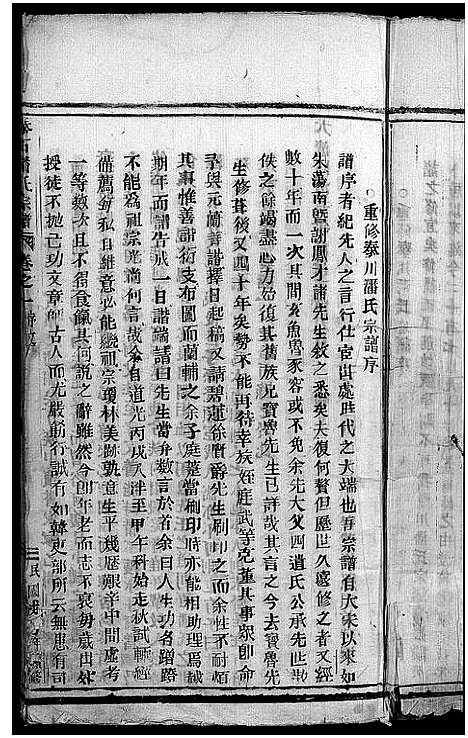 重修泰川潘氏宗譜序
譜序者紀先人之言行仕宦出處胜代之大端也吾宗譜自大宋以來如
朱蕩南暨謝鳳才諸先生敘之悉矣夫復何贅但歷世久遠修之者又經
數十年而一次其間亥魚魯豕容或不免余先大父四道氏公承先世散
佚之餘竭盡心力始復其舊族兄寶魯先生已詳哉其言之今去寶魯先
生修葺後又四十年矣勢不能再待幸族姪庭武等克董其事眾即命
予與元蘭善譜擇日起稿又請碧蓮徐賢爵先生刷印之而余性不耐煩
其事惟善譜衍支布圖而蘭輔之余子庭蓂當刷印時亦能相助理焉越
期年而譜告成一日譜端請曰先生當弁數言於首余曰人生功名蹭蹬
不能為祖宗光尚何言哉余自道光丙戌入泮至甲午科始走秋試輒經
備薦竊私自維意必能繼祖宗瓊林美跡孰意生平幾歷艱辛中間虛考
一等數次且不得食餼其何說之辭雖然今即年老而志不衰每歲出外
授徒不拋己功文章師古人而尤嚴躬行誠有如韓吏部所云無患有司
潘氏宗譜 卷之一
民國